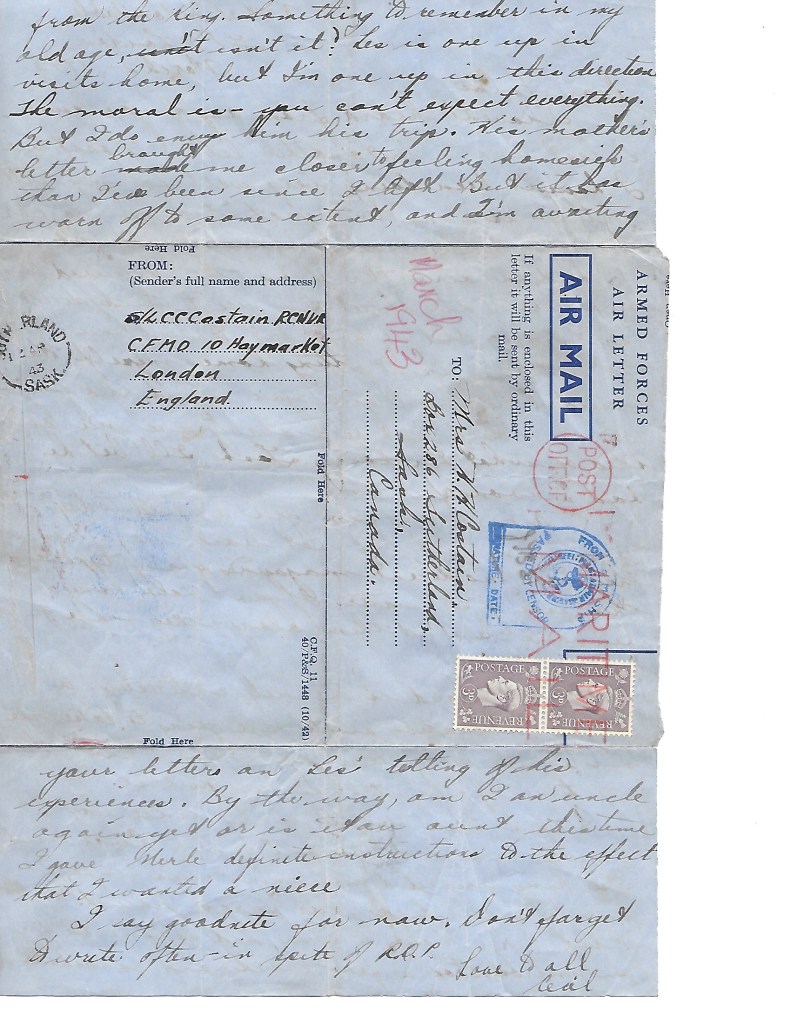 from the King. Something to remember in my
old age, isn't isn't it? Les is one up in
visits home, but I'm one up in this direction
The moral is – you can't expect everything.
But I do envy him his trip. His mother's
letter brought me closer to feeling homesick
than I've been since I left But it has
worn off to some extent, and I'm awaiting
Fold Here
FROM:
(Sender's full name and address)
S/L C C Costain RCNVR
CFMO 10 Haymarket
London
England
SASK
43
Fold Here
ARMED FORCES
AIR LETTER
AIR MAIL
If anything is enclosed in this
letter it will be sent by ordinary
mail.
March
1943
TO:
Mrs H H Costain,
Box 286 Sutherland,
Sask,
Canada.
POST
OFFICE
FROM
PASSED BY CENSOR
DATE.
POSTAGE
3D
REVENUE
POSTAGE
3D
REVENUE
C.F.Q. 11
40/P&S/1448 (10/42)
Fold Here
your letters on Les' telling of his
experiences. By the way, am I an uncle
again yet or is it an aunt this time
I gave Merle definite instructions to the effect
that I wanted a niece
I say goodnite for now. Don't forget
to write often – in spite of R.O.P.
Love to all
Cecil